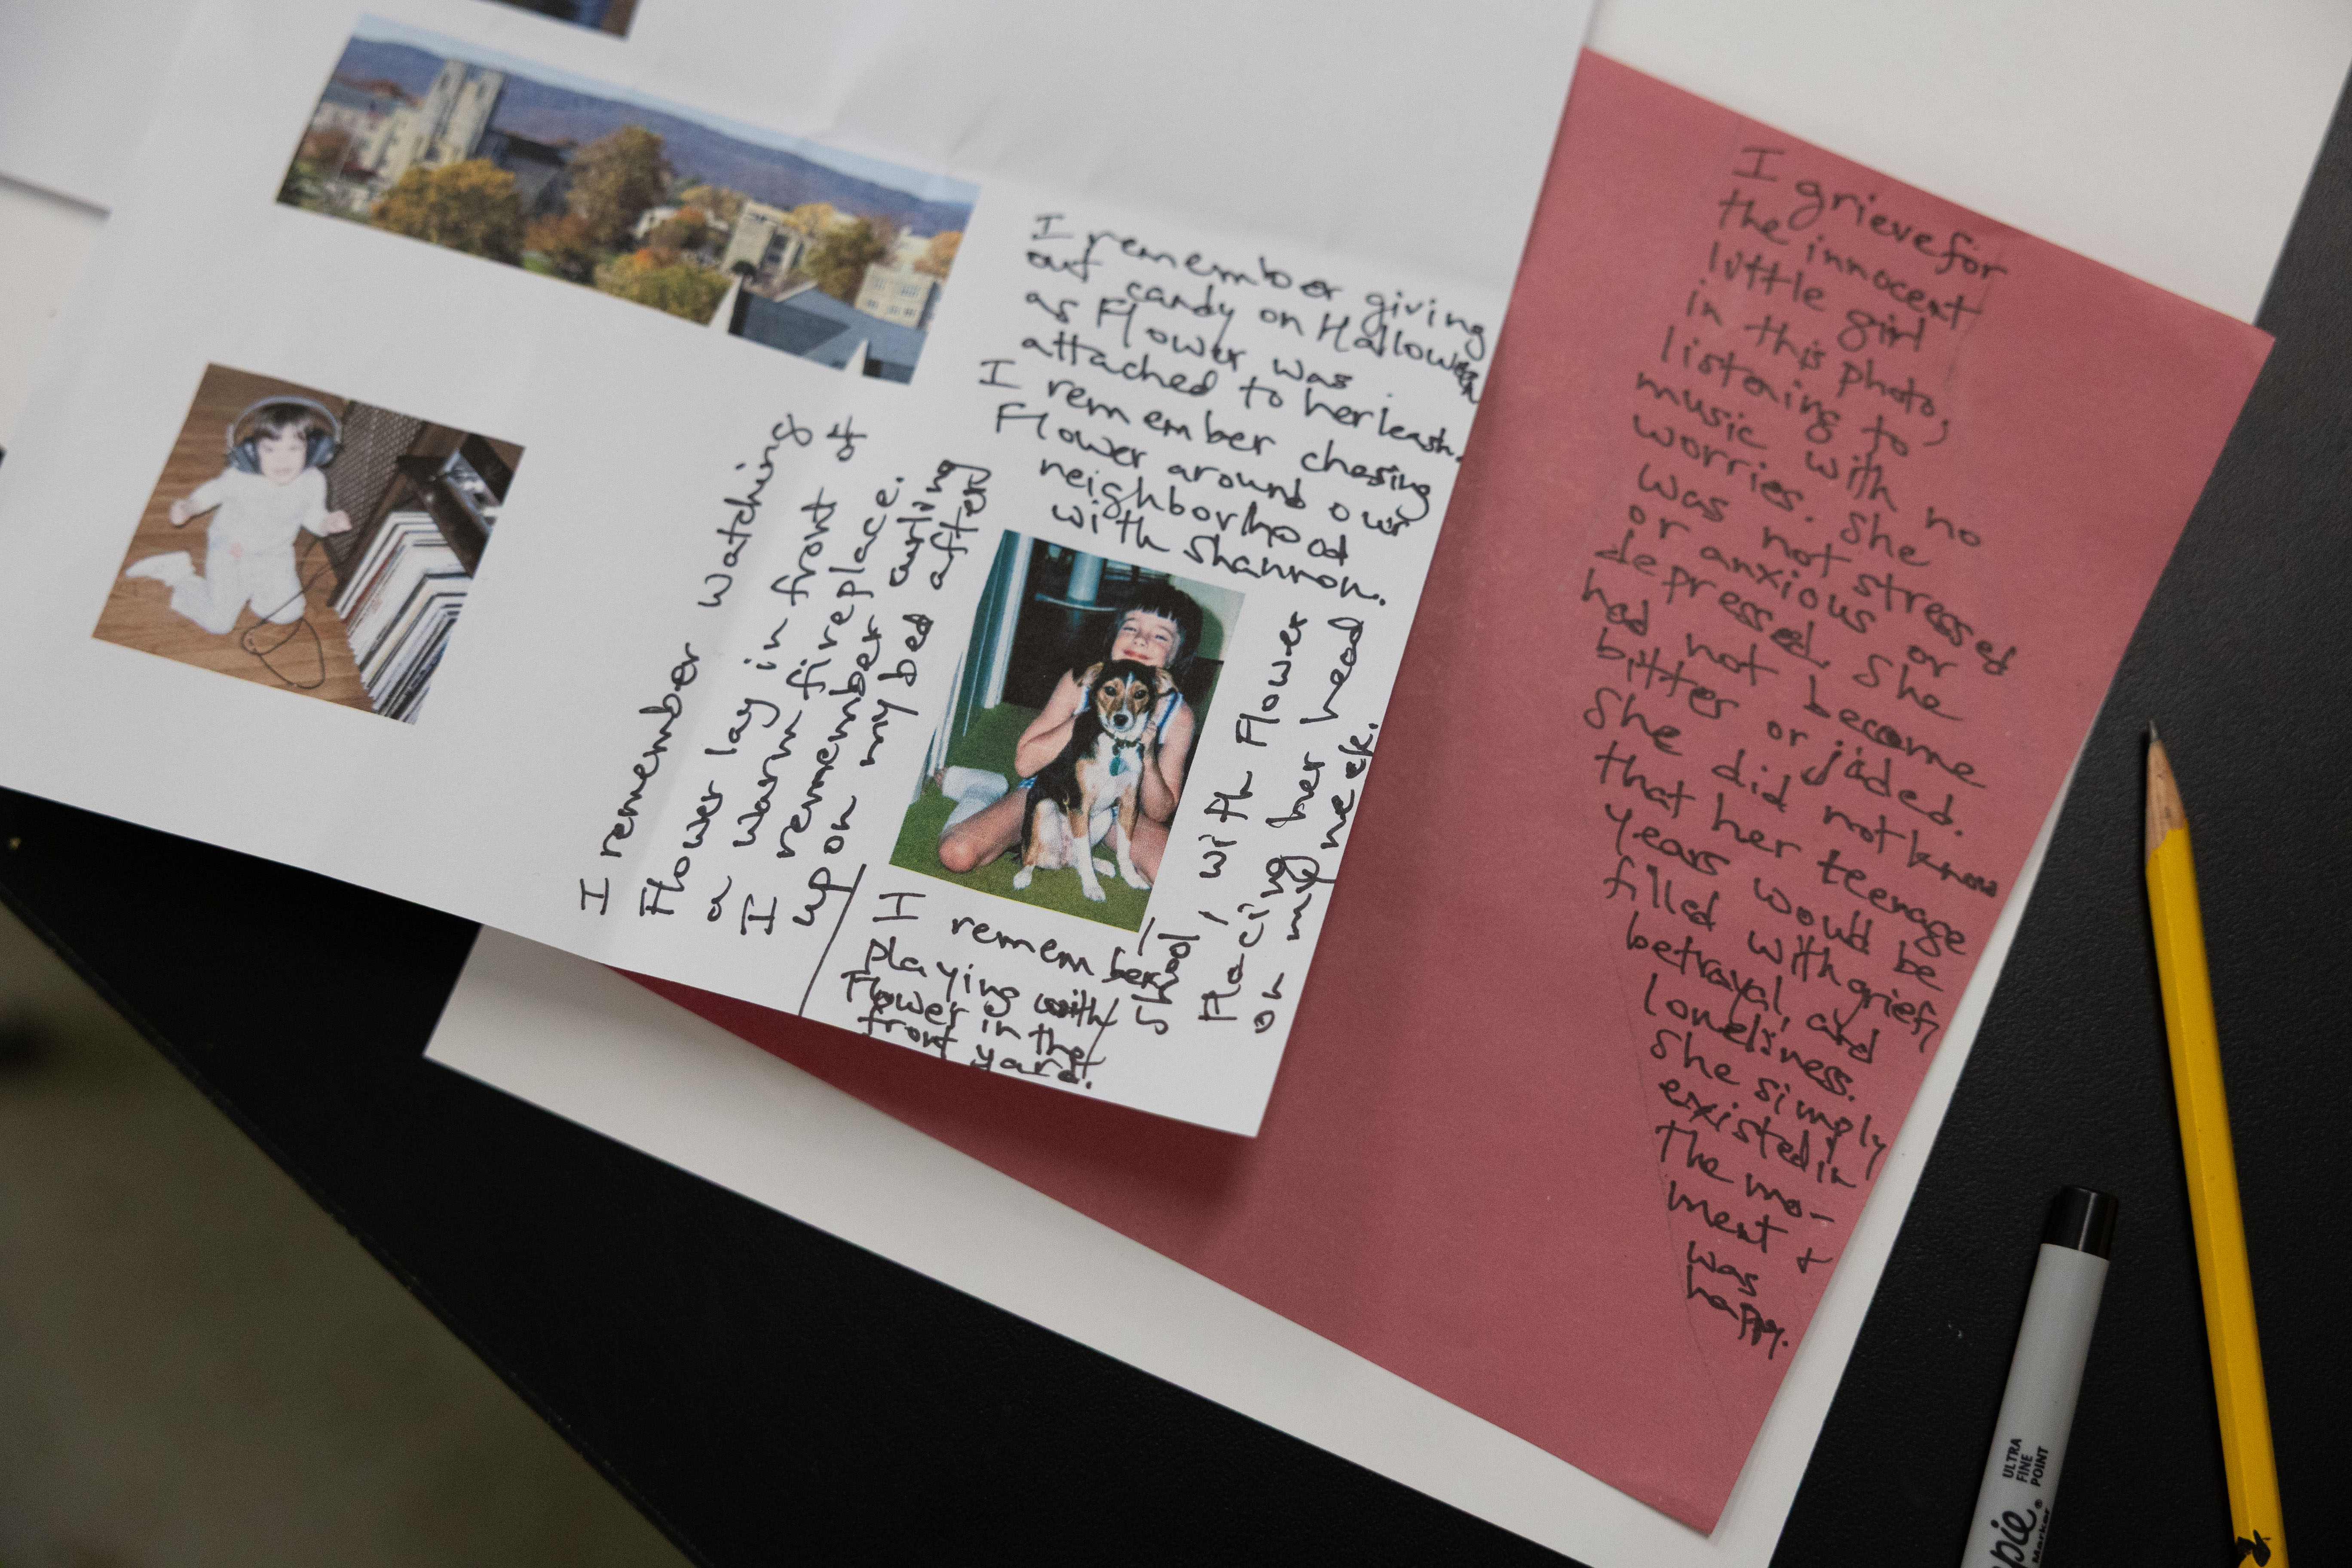 I remember giving
out candy on Halloween
as Flower was
attached to her leash.
I remember chasing
Flower around our
neighborhood
with Shannon.
I remember watching
Flower lay in front of
a warm fireplace.
I remember curling
up on my bed after
school with Flower
placing her head
on my neck.
I remember
playing with
Flower in the
front yard.
I grieve for
the innocent
little girl
in this photo,
listening to
music with no
worries. She
was not stressed
or anxious or
depressed. She
had not become
bitter or jaded.
She did not know
that her teenage
years would be
filled with grief,
betrayal, and
loneliness.
She simply
existed in
the mo-
ment +
was
happy.
ULTRA
FINE
POINT
pie®
Marker